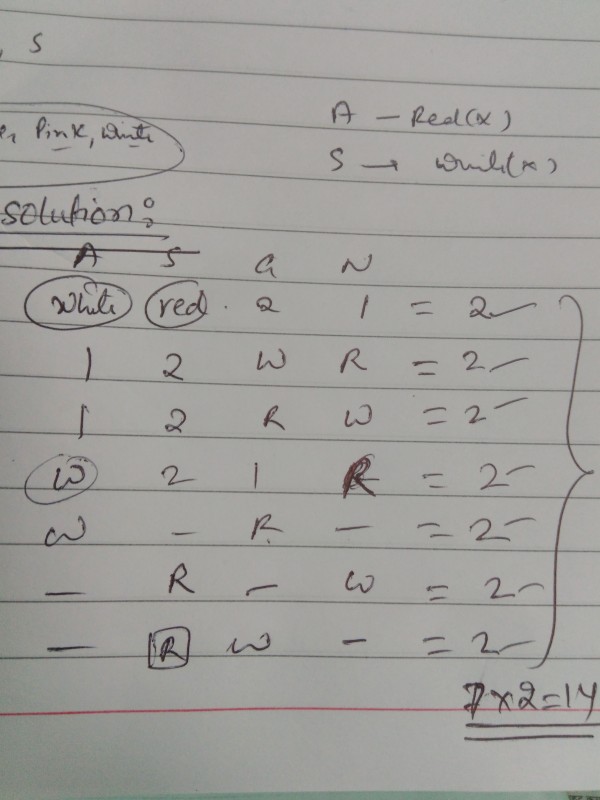 , S
Pink, white
A - Red(x)
S → white(x)
solution:
A S G N
white red. 2 1 = 2
1 2 W R = 2
1 2 R W = 2
W 2 1 R = 2
W - R - = 2
- R - W = 2
- R W - = 2
7x2=14